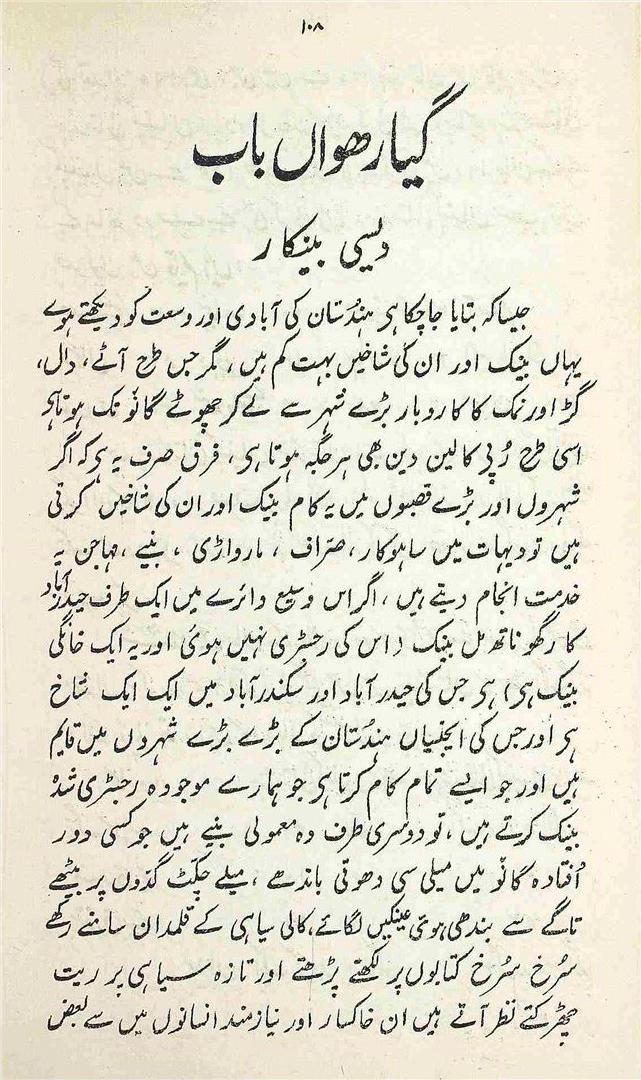 ۱۰۸
گیارھواں باب
دیسی بینکار
جیسا کہ بتایا جا چکا ہی ہندُستان کی آبادی اور وسعت کو دیکھتے ہوے
یہاں بینک اور ان کی شاخیں بہت کم ہیں ، مگر جس طرح آٹے ، دال ،
گڑ اور نمک کا کاروبار بڑے شہر سے لے کر چھوٹے گانْو تک ہوتا ہی
اسی طرح رُپی کا لین دین بھی ہر جگہ ہوتا ہی ، فرق صرف یہ ہی کہ اگر
شہروں اور بڑے قصبوں میں یہ کام بینک اور ان کی شاخیں کرتی
ہیں تو دیہات میں ساہوکار ، صرّاف ، مارواڑی ، بنیے ، مہاجن یہ
خدمت انجام دیتے ہیں ، اگر اس وسیع دائرے میں ایک طرف حیدرآباد
کا رگھوناتھ مل بینک (اس کی رجسٹری نہیں ہوئی اور یہ ایک خانگی
بینک ہی) ہی جس کی حیدر آباد اور سکندر آباد میں ایک ایک شاخ
ہی اور جس کی ایجنسیاں ہندُستان کے بڑے بڑے شہروں میں قایم
ہیں اور جو ایسے تمام کام کرتا ہی جو ہمارے موجودہ رجسٹری شدہ
بینک کرتے ہیں ، تو دوسری طرف وہ معمولی بنیے ہیں جو کسی دور
اُفتادہ گانْو میں میلی سی دھوتی باندھے ، میلے چکٹ گدّوں پر بیٹھے
تاگے سے بندھی ہوئی عینکیں لگائے ، کالی سیاہی کے قلمدان سامنے رکھے
سُرخ سُرخ کتابوں پر لکھتے پڑھتے اور تازہ سیاہی پر ریت
چھڑکتے نظر آتے ہیں ان خاکسار اور نیازمند انسانوں میں سے بعض